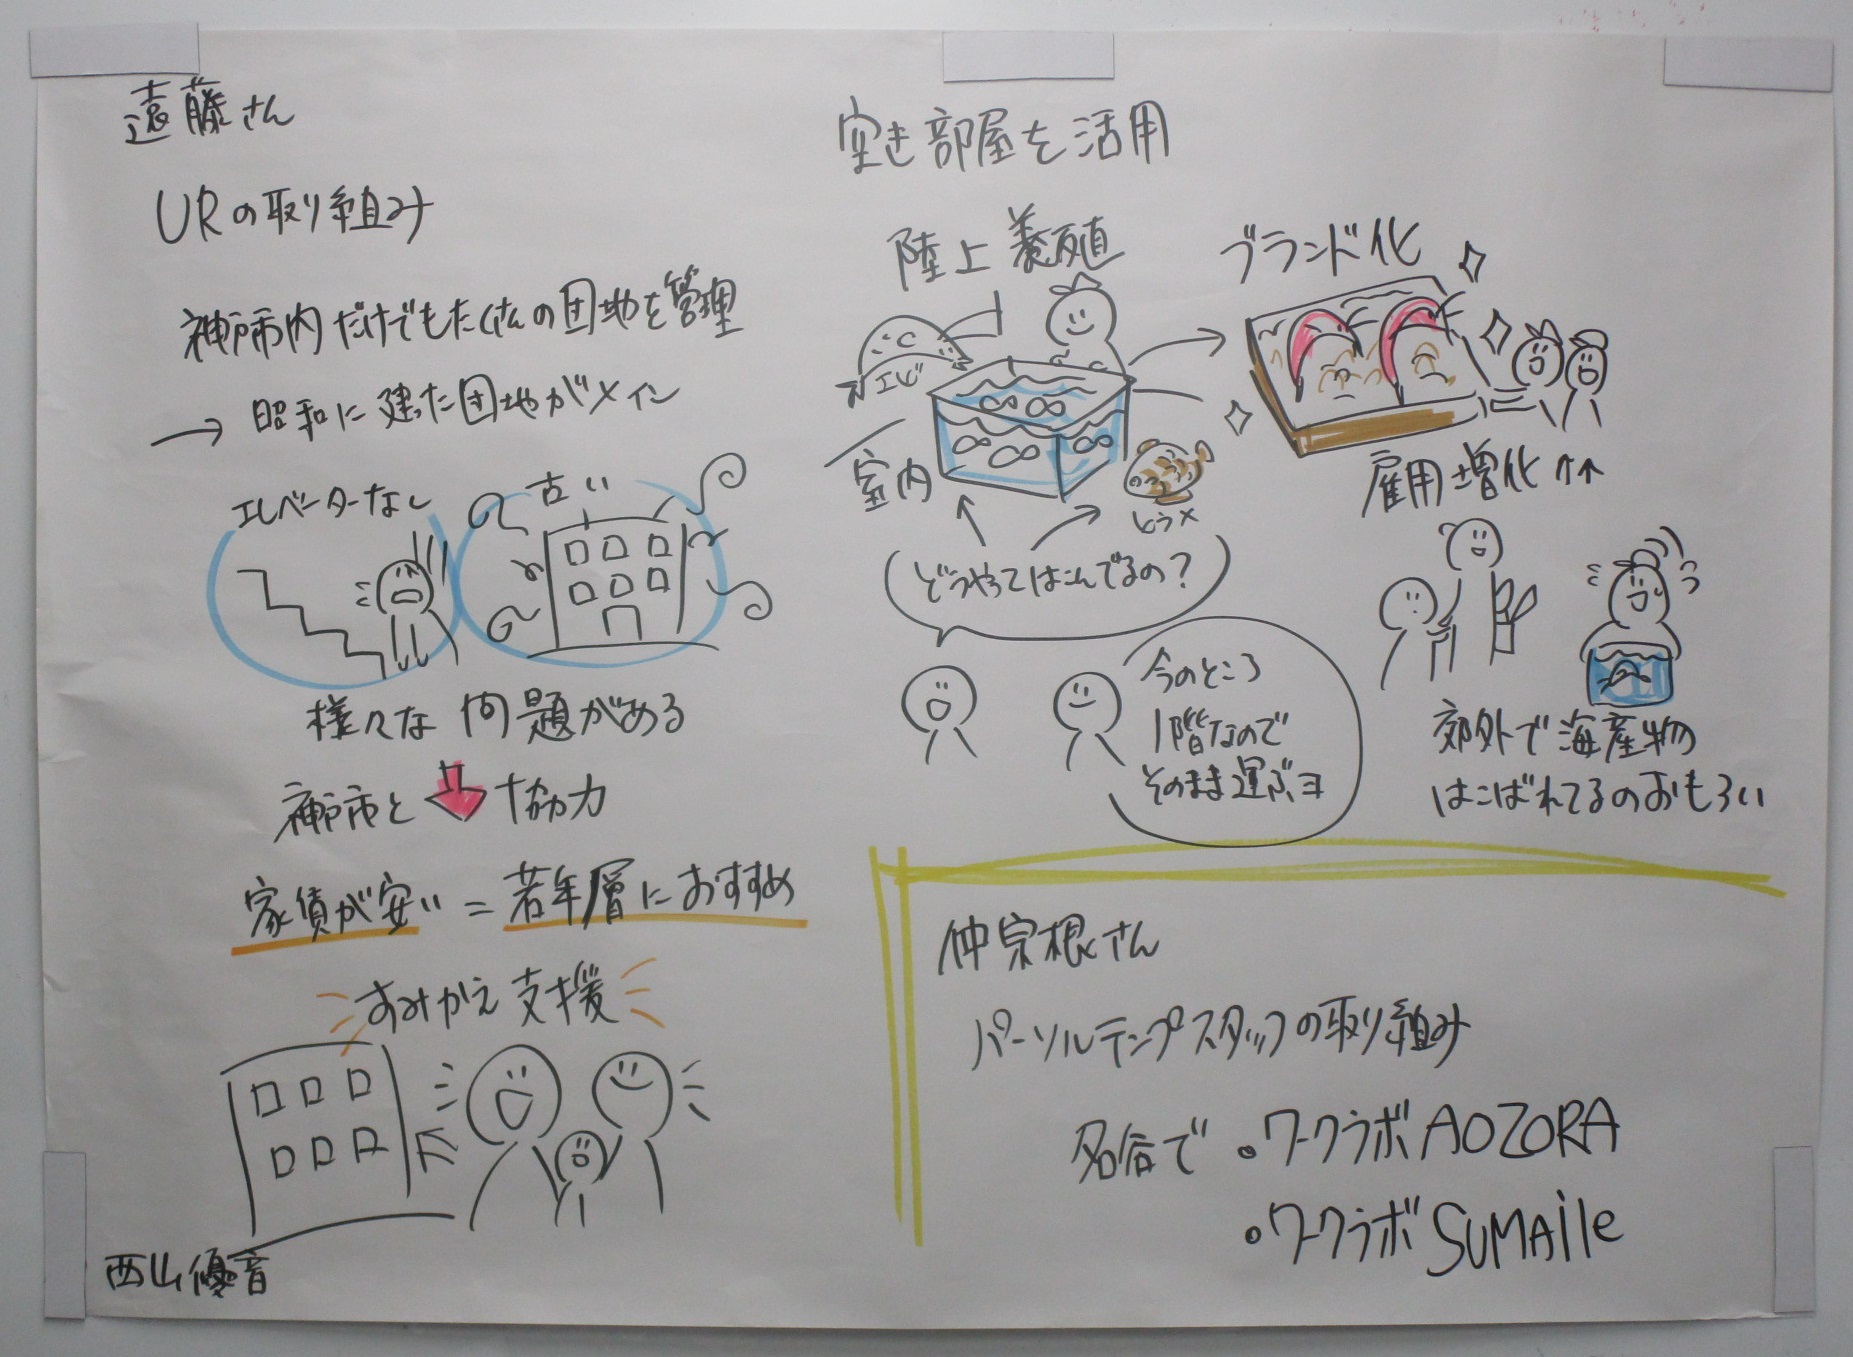 遠藤さん
URの取り組み
神戸市内だけでもたくさんの団地を管理
→ 昭和に建った団地がメイン
エレベーターなし
古い
様々な問題がある
神戸市と協力
家債が安い = 若年層におすすめ
すみかえ支援
西山優音
空き部屋を活用
陸上養殖
エビ
室内
とらメ
ブランド化
雇用増化↑↑
どうやってはこんでるの?
今のところ
1階なので
そのまま運ぶヨ
郊外で海産物
はこばれてるのおもろい
仲宗根さん
パーソルテンプスタッフの取り組み
名谷で ・ワークラボAOZORA
・ワークラボSUMAile